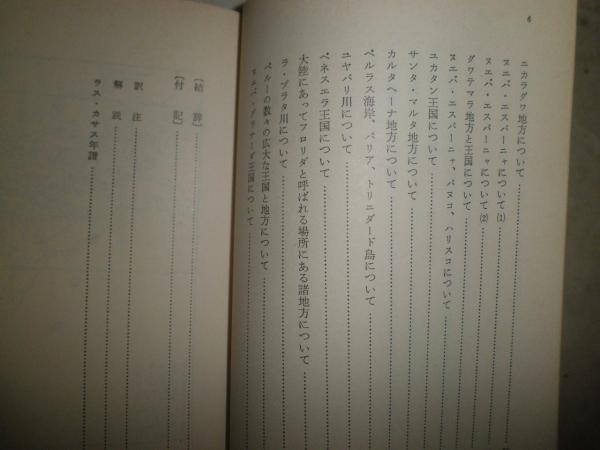 6
ニカラグワ地方について
ヌエバ・エスパーニャについて (1)
ヌエバ・エスパーニャについて (2)
グワテマラ地方と王国について
ヌエバ・エスパーニャ、パヌコ、ハリスコについて
ユカタン王国について
サンタ・マルタ地方について
カルタヘーナ地方について
ペルラス海岸、パリア、トリニダード島について
ユヤパリ川について
ベネスエラ王国について
大陸にあってフロリダと呼ばれる場所にある諸地方について
ラ・プラタ川について
ペルーの数々の広大な王国と地方について
ヌエバ・グラナーダ王国について
〔結辞〕
〔付記〕
訳注
解説
ラス・カサス年譜